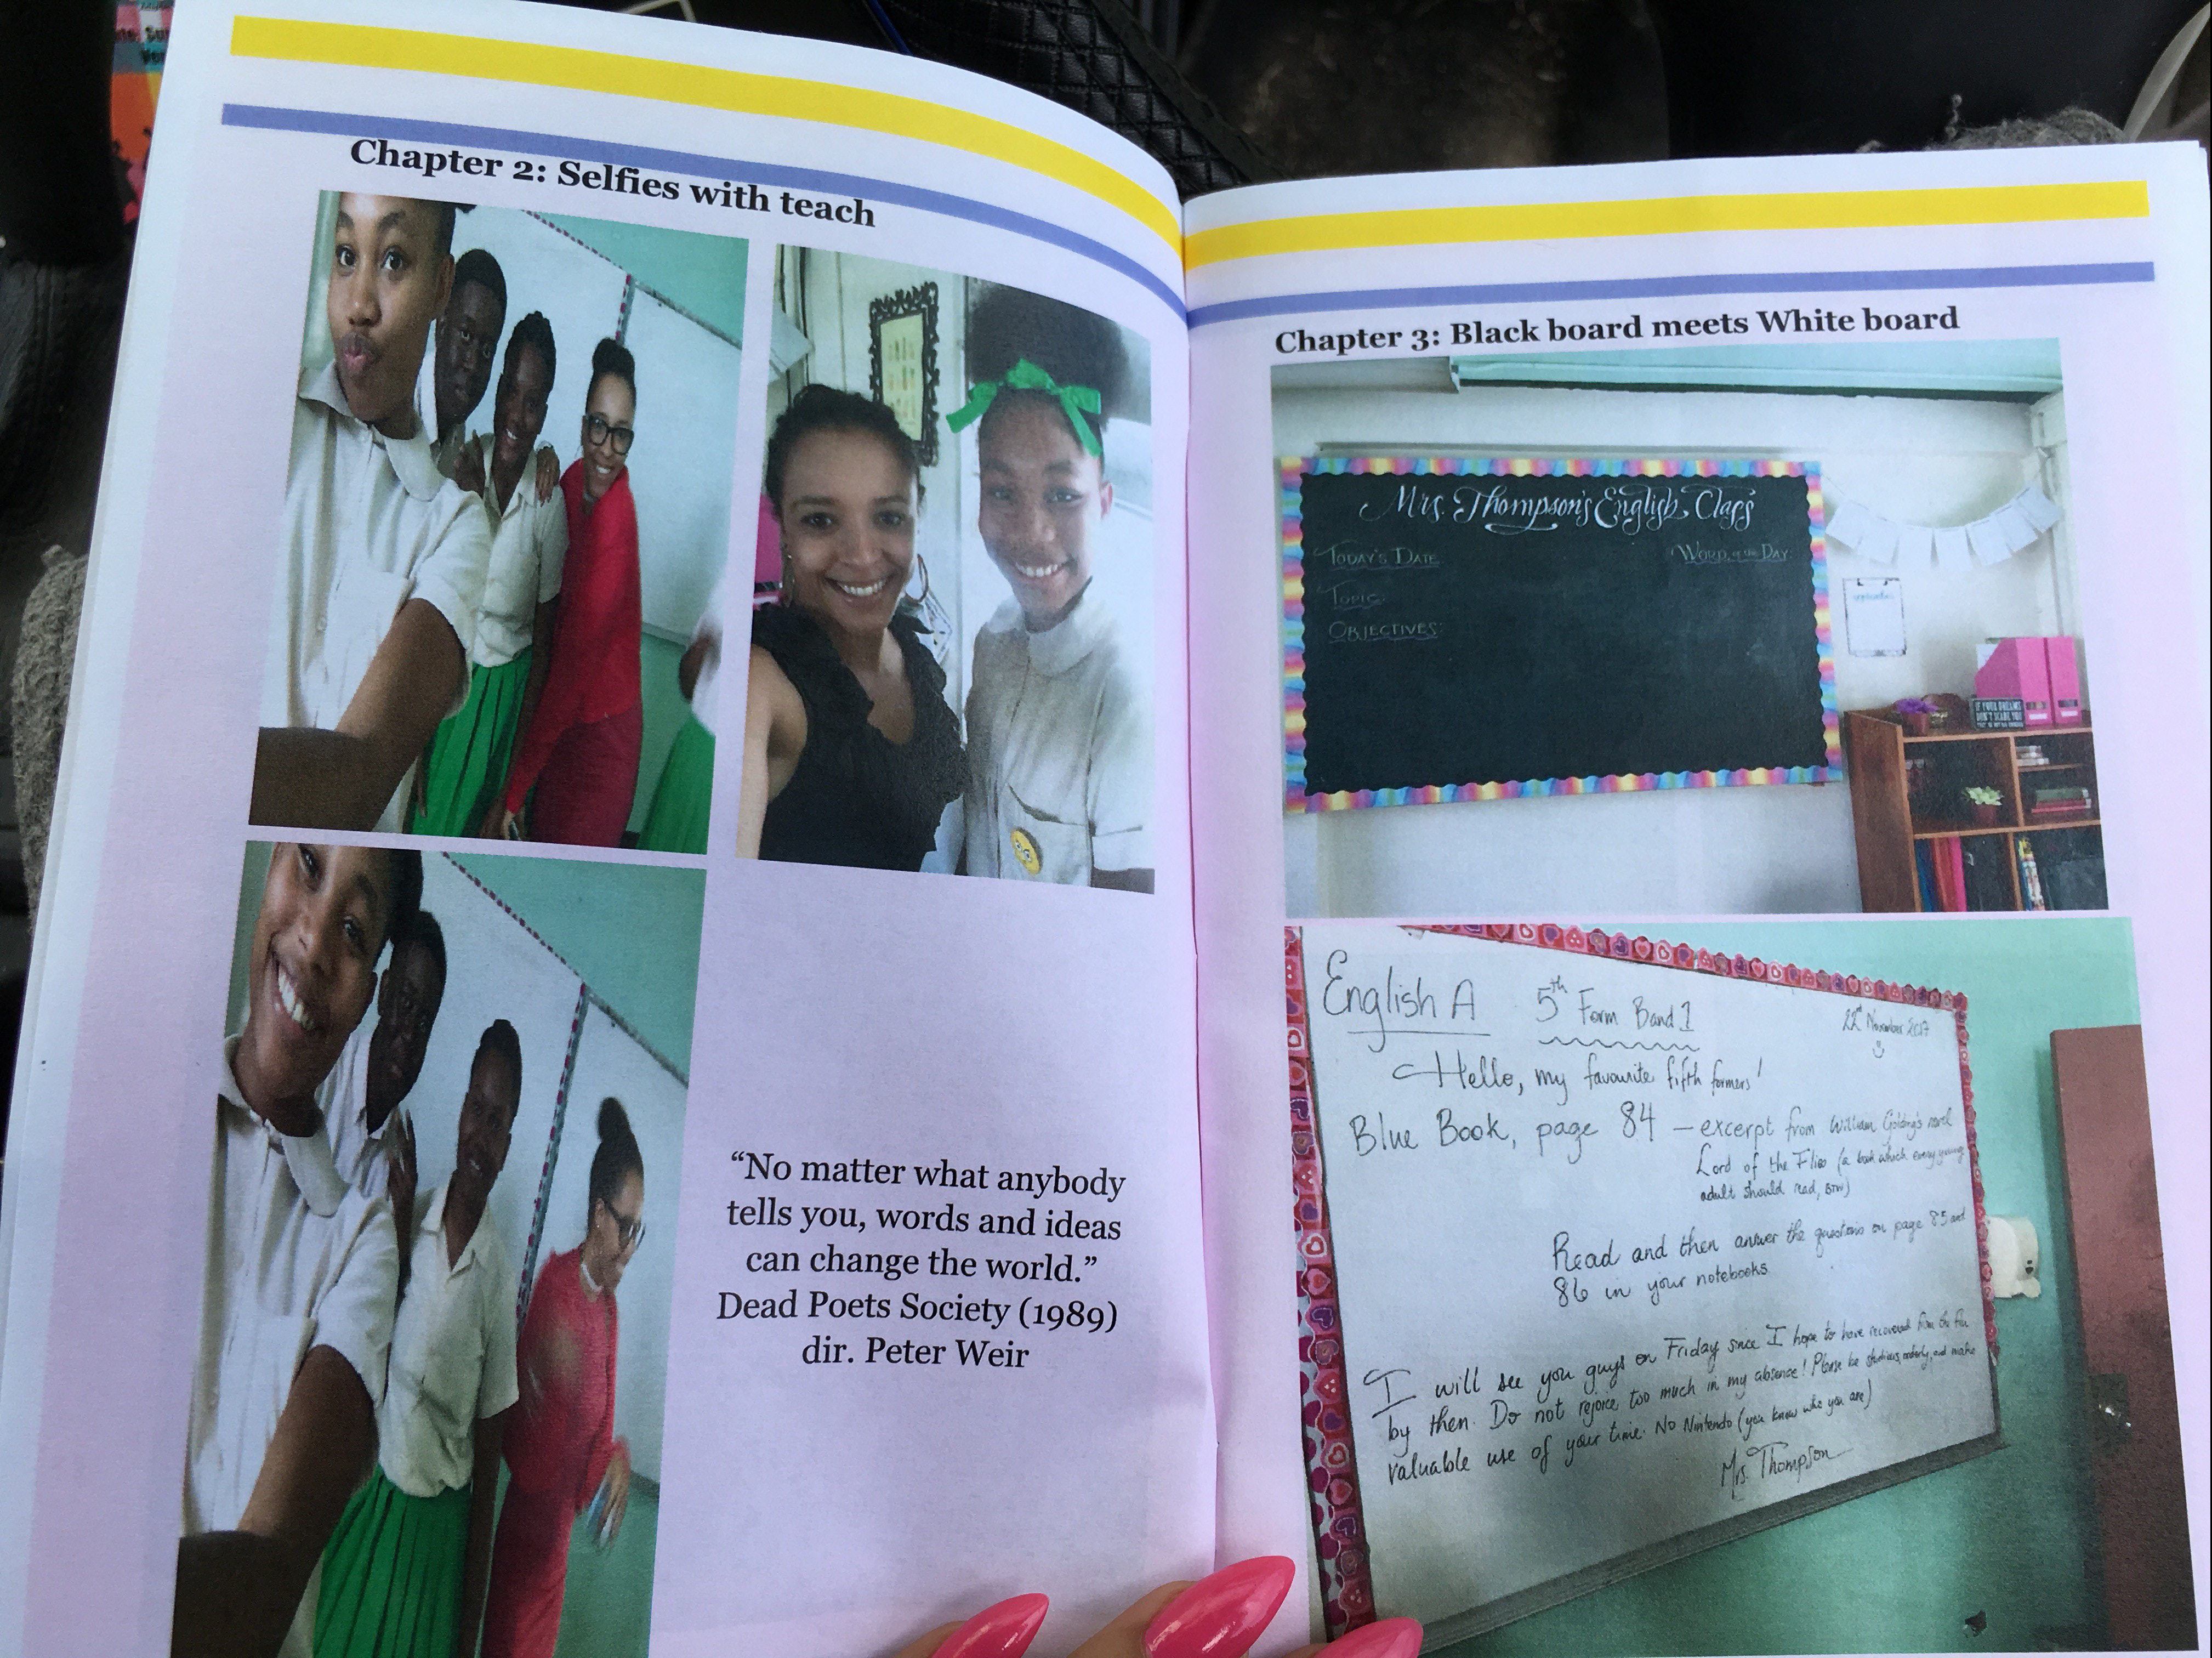 Chapter 2: Selfies with teach
“No matter what anybody
tells you, words and ideas
can change the world.”
Dead Poets Society (1989)
dir. Peter Weir
Chapter 3: Black board meets White board
Mrs. Thompson's English Class
Today's Date
Word of the Day:
Topic:
Objectives:
september
IF YOUR DREAMS
DON'T SCARE YOU
English A 5th Form Band 1 22nd November 2017
Hello, my favourite fifth formers!
Blue Book, page 84 – excerpt from William Golding's novel
Lord of the Flies (a book which every young
adult should read, BTW)
Read and then answer the questions on page 85 and
86 in your notebooks
I will see you guys on Friday since I hope to have recovered from the flu
by then. Do not rejoice too much in my absence! Please be studious, orderly, and make
valuable use of your time. No Nintendo (you know who you are)
Mrs. Thompson